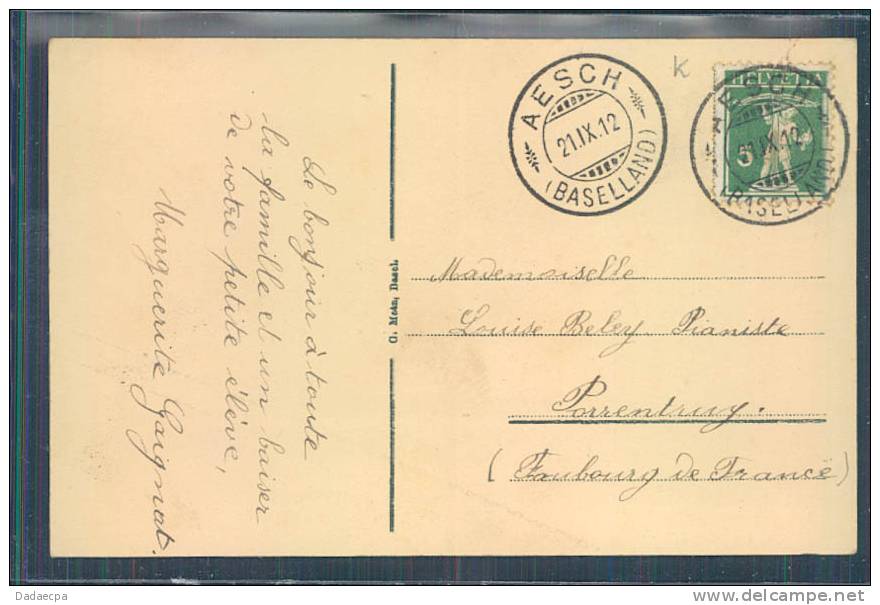 Le bonjour à toute
la famille et un baiser
de votre petite élève,
Marguerite Gaignat.
G. Metz, Basel.
K
AESCH
21.IX.12
(BASELLAND)
HELVETIA
5
AESCH
21.IX.12
(BASELLAND)
Mademoiselle
Louise Beley Pianiste
Porrentruy.
(Faubourg de France)
Dadaecpa
www.delcampe.net